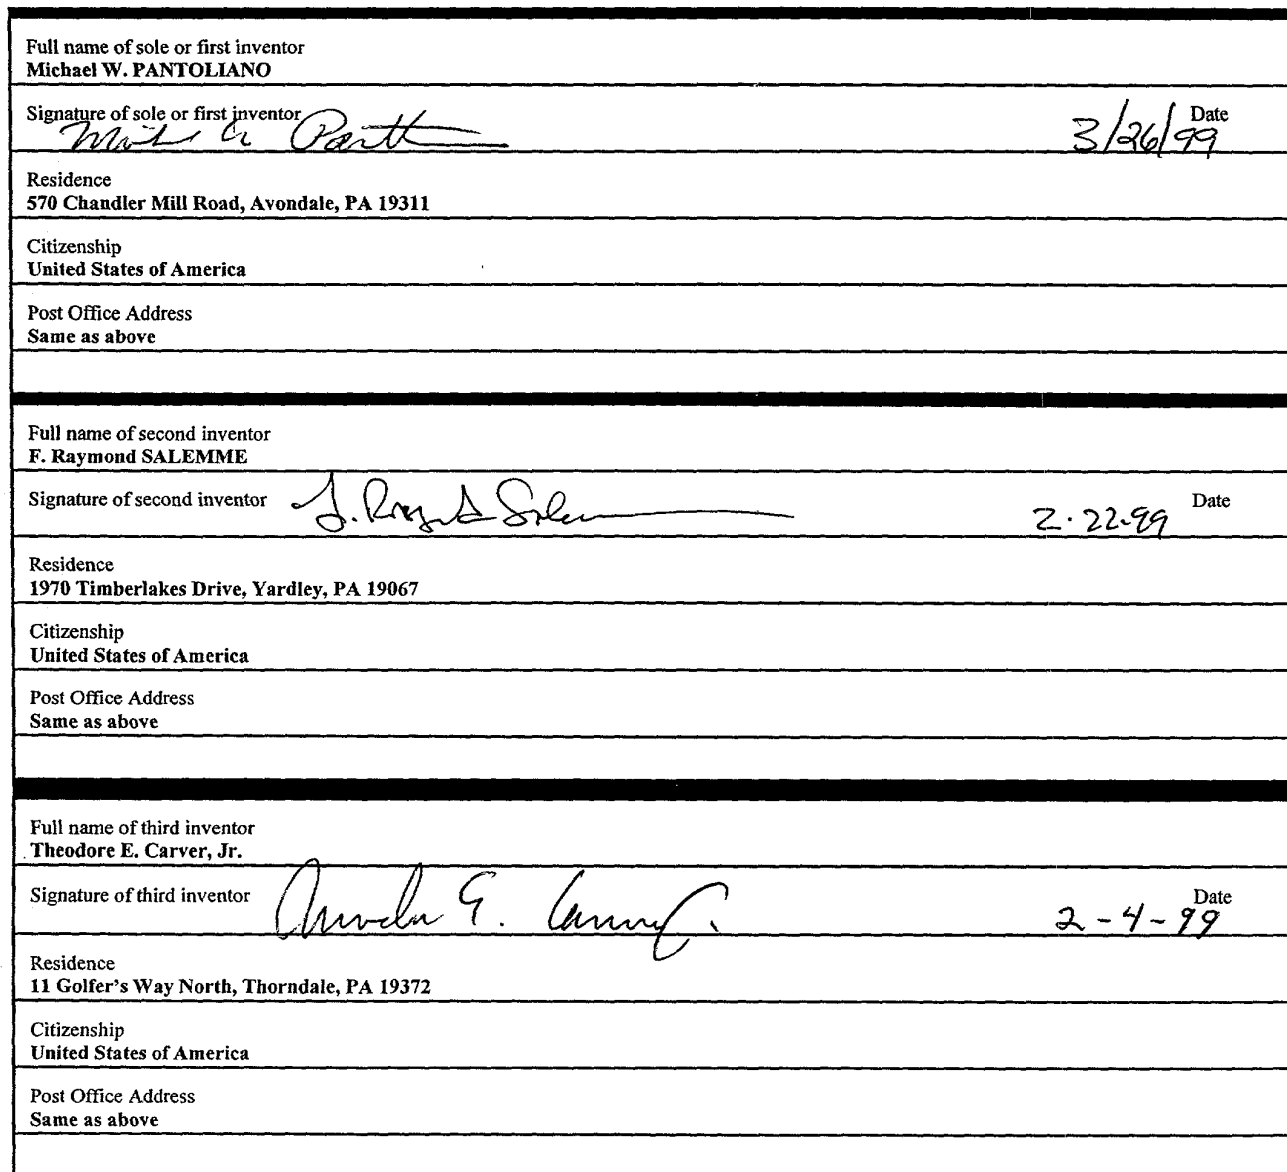 Full name of sole or first inventor
Michael W. PANTOLIANO
Signature of sole or first inventor
Date
3/26/99
Residence
570 Chandler Mill Road, Avondale, PA 19311
Citizenship
United States of America
Post Office Address
Same as above
Full name of second inventor
F. Raymond SALEMME
Signature of second inventor
Date
2.22.99
Residence
1970 Timberlakes Drive, Yardley, PA 19067
Citizenship
United States of America
Post Office Address
Same as above
Full name of third inventor
Theodore E. Carver, Jr.
Signature of third inventor
Date
2-4-99
Residence
11 Golfer's Way North, Thorndale, PA 19372
Citizenship
United States of America
Post Office Address
Same as above